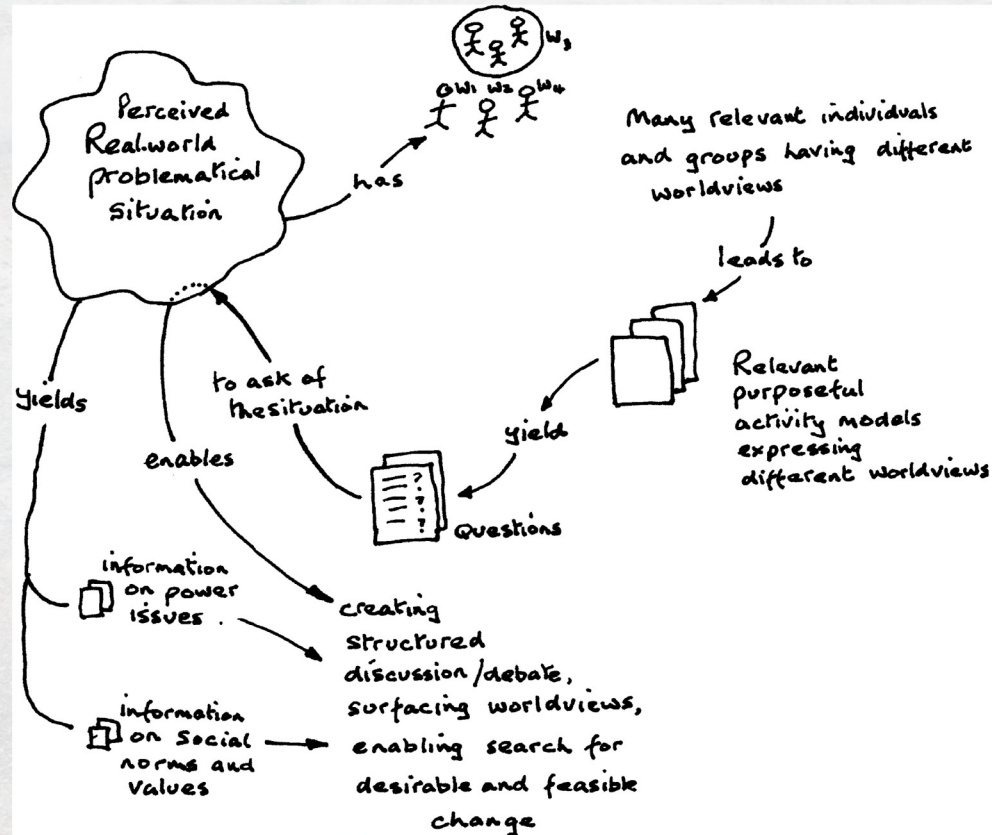 Perceived
Real-world
problematical
situation
has
W3
W1 W2 W4
Many relevant individuals
and groups having different
worldviews
leads to
Relevant
purposeful
activity models
expressing
different worldviews
yield
? 
?
?
Questions
to ask of
the situation
enables
yields
information
on power
issues.
information
on social
norms and
values
creating
structured
discussion/debate,
surfacing worldviews,
enabling search for
desirable and feasible
change